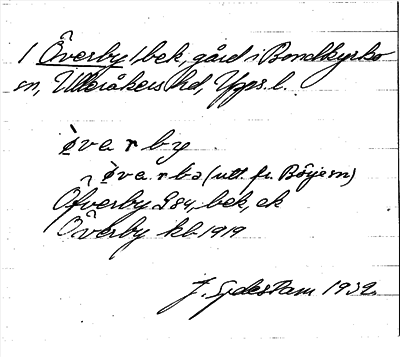 1 Överby, bek, gård i Bondkyrko
sn, Ulleråkers hd, Upps. l.
ø̀varby
~ ø̀varbə (utt. fr. Börje sn)
Öfverby G84, bek, ek
Överby kb 1919
J. Sydestam 1932.